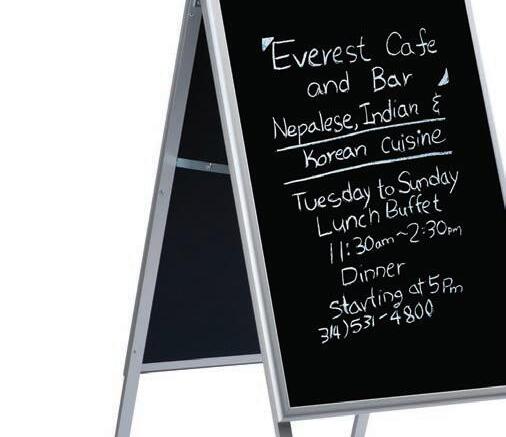 Everest Cafe
and Bar
Nepalese, Indian &
Korean Cuisine
Tuesday to Sunday
Lunch Buffet
11:30am~2:30pm
Dinner
Starting at 5pm
314)531-4800